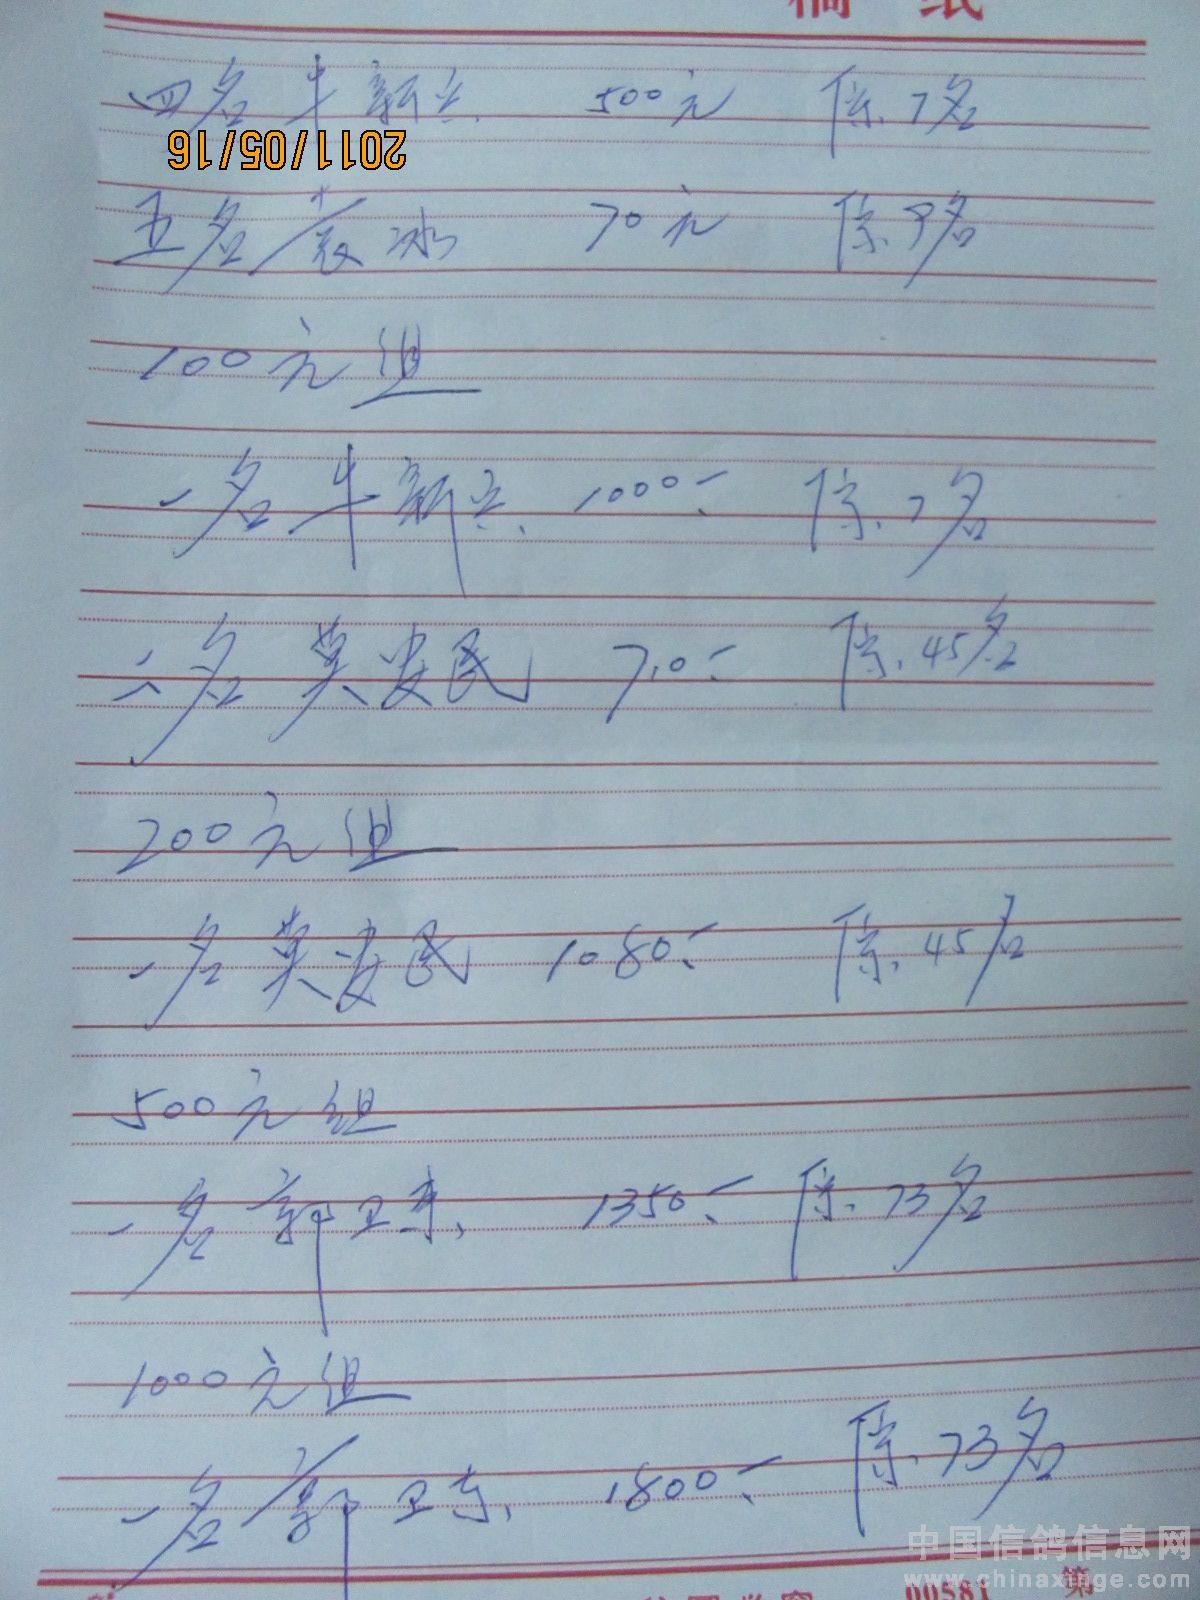 稿 纸
四名 牛新立 500元 综.7名
2011/05/16
五名 袁冰 70元 综.9名
100元组
一名 牛新立. 1000.- 综.7名
六名 莫安民 70.- 综.45名
200元组
一名 莫安民 1080.- 综.45名
500元组
一名 郭卫东. 1350.- 综.73名
1000元组
一名 郭卫东. 1800.- 综.73名
中国信鸽信息网
www.chinaxinge.com
00581 第